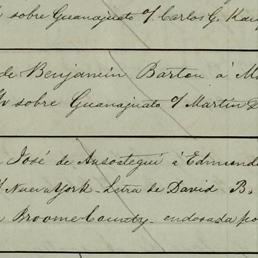 sobre Guanajuato o/ Carlos G. Kau
de Benjamin Barton á M
sobre Guanajuato o/ Martin D
José de Ansoategui á Edmund
Nueva York - Letra de David B.
Broome County - endosada po